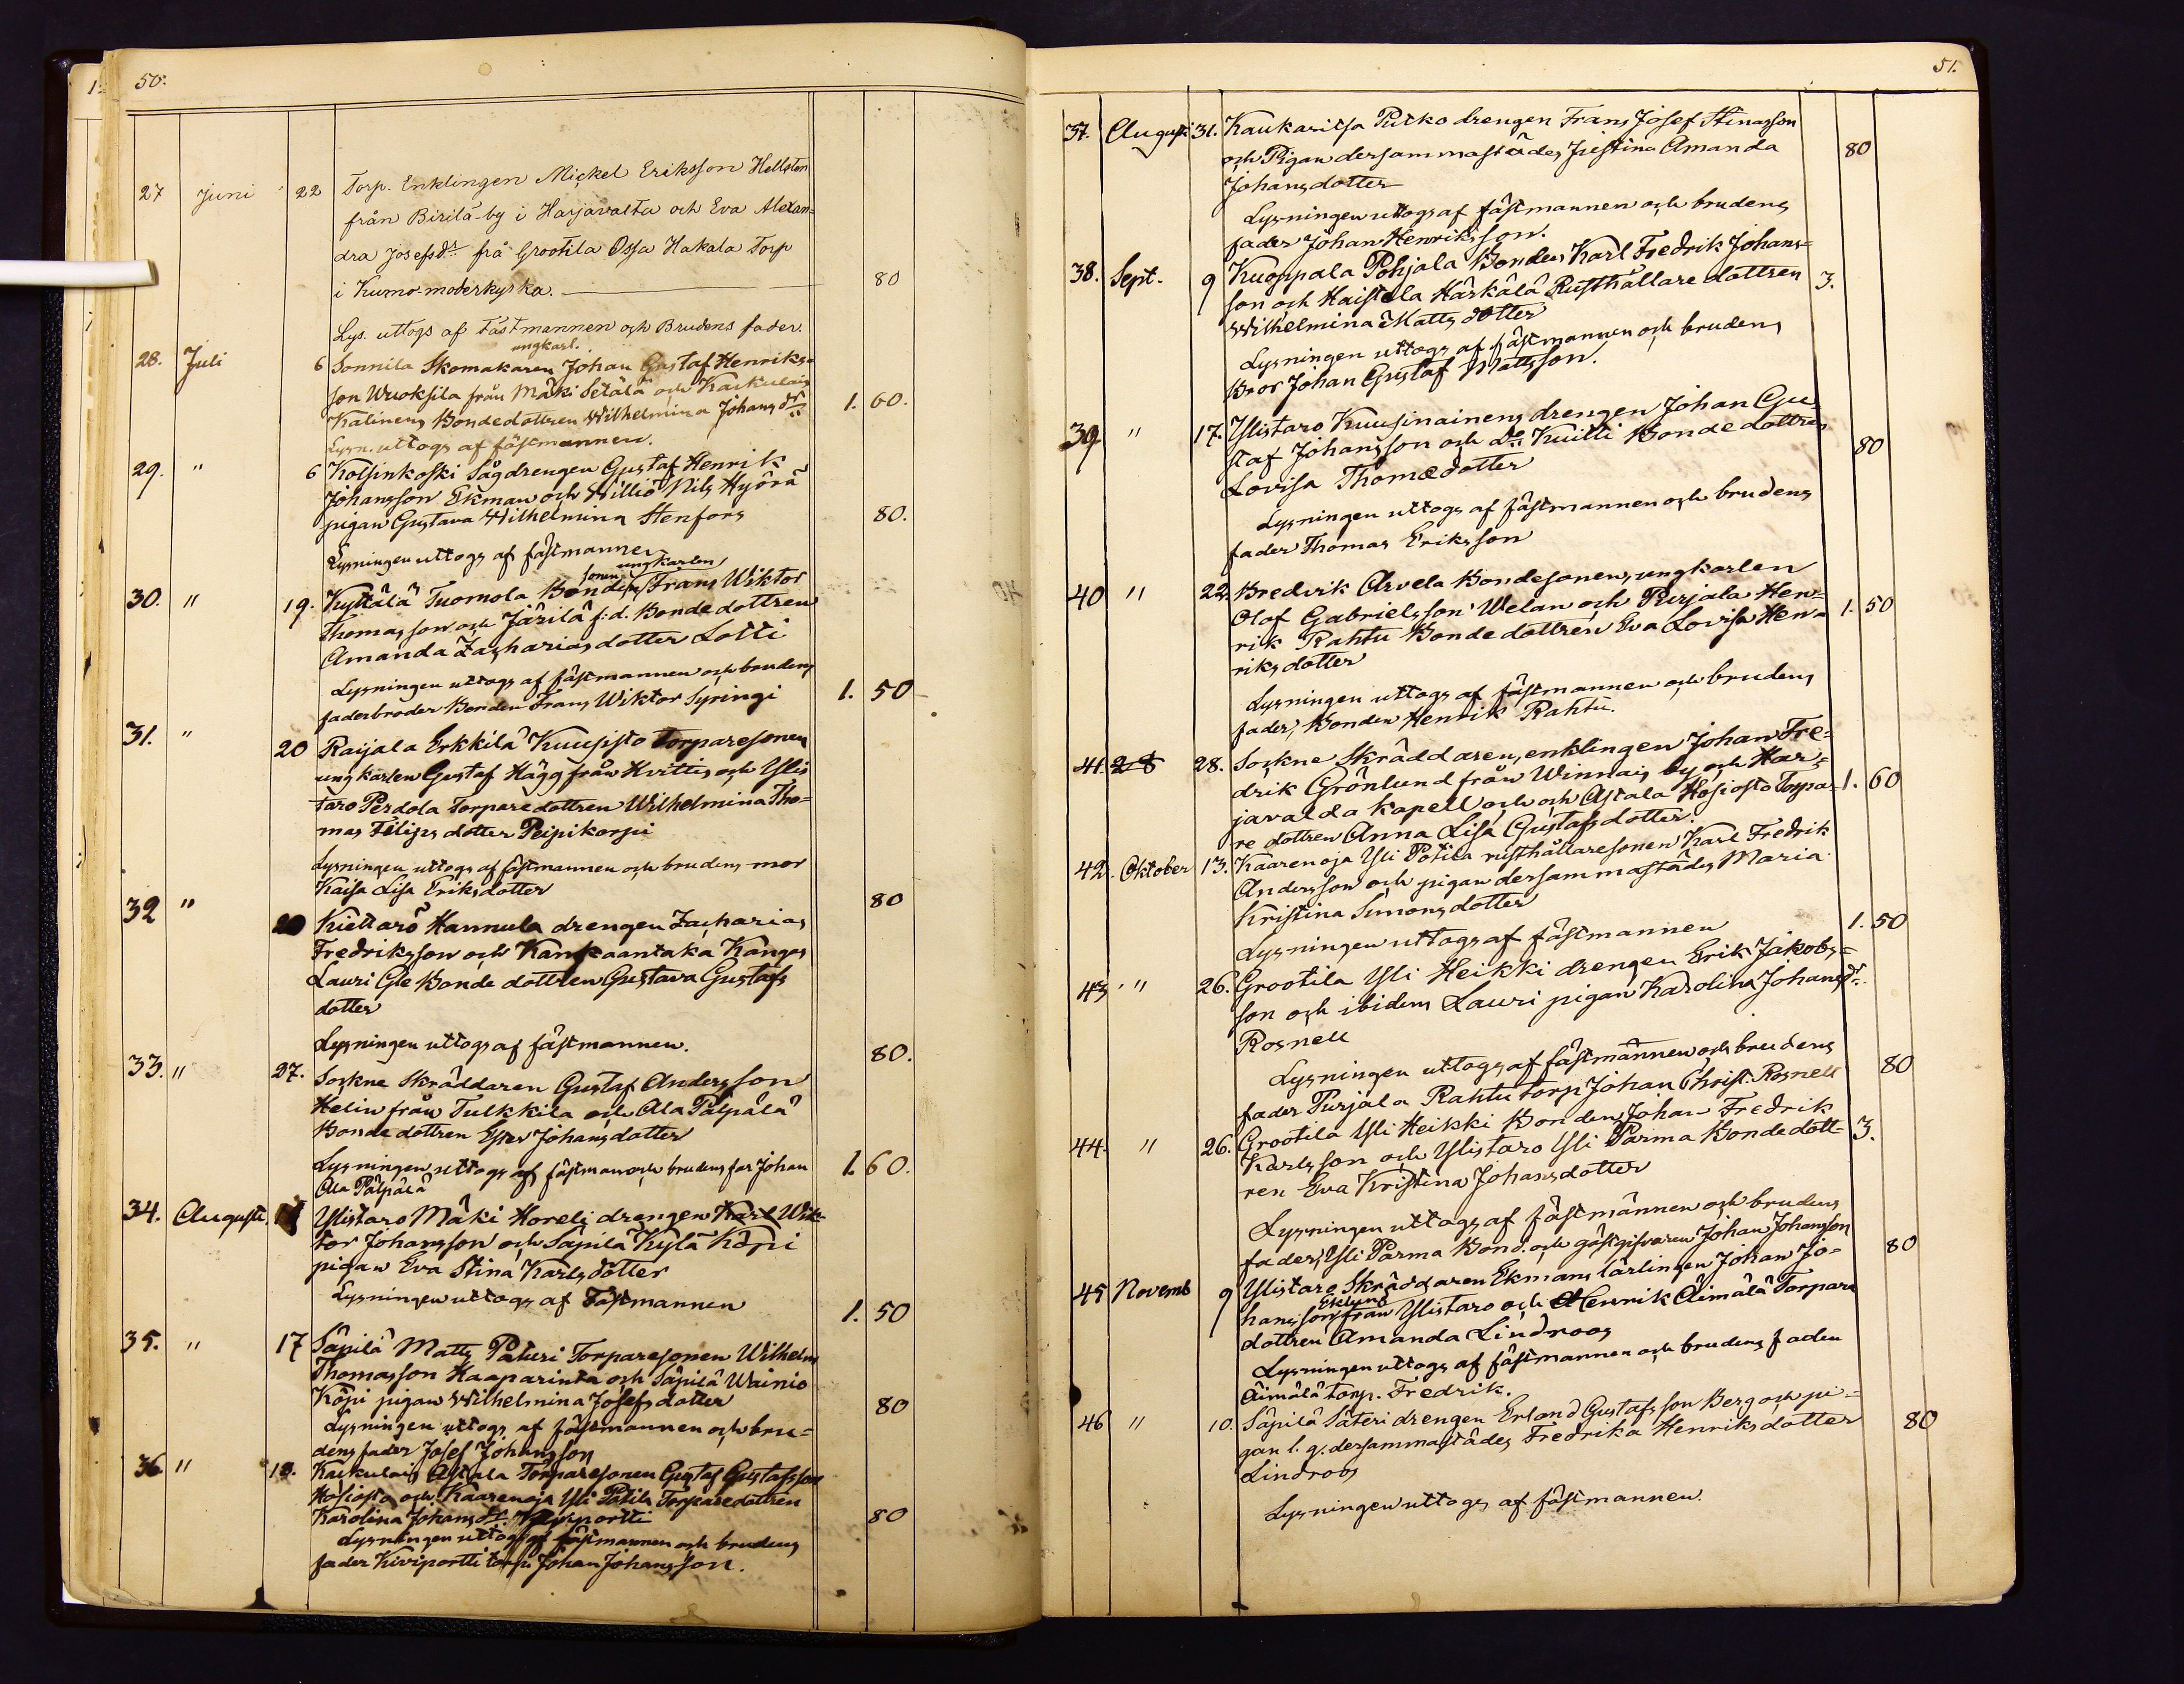 50.
27 Juni 22 Torp. Enklingen Mickel Eriksson Hellsten
från Birilä-by i Harjavalta och Eva Alexan=
dra Josefsdr frå Grootila Ossa Hakala Torp
i Kumo moderkyrka. 80
Lys. uttogs af Fästmannen och Brudens fader.
ungkarl.
28. Juli 6 Sonnila Skomakaren Johan Gustaf Henriks-
son Wuoksila från Mäki Setälä och Kaikulais
Kalinens Bondedottren Wilhelmina Johansdr 1. 60.
Lysn. uttogs af fästmannen.
29. " 6 Kolsinkoski Sågdrengen Gustaf Henrik
Johansson Ekman och Williö Nils Hyörä
pigan Gustava Wilhelmina Stenfors 80.
Lysningen uttogs af fästmannen
sonen ungkarlen
30. " 19. Kyttälä Tuomola Bonden Frans Wiktor
Thomasson och Järilä f:d. Bonde dottren
Amanda Zachariasdotter Lotti
Lysningen uttogs af fästmannen och brudens
faderbroder Bonden Frans Wiktor Syringi 1. 50
31. " 20 Raijala Erkkilä Kuusisto Torparesonen
ungkarlen Gustaf Hägg från Hvittis och Ylis
taro Perdola Torparedottren Wilhelmina Tho=
mas Filipsdotter Peipikorpi
Lysningen uttogs af fästmannen och brudens mor
Kaisa Lisa Eriksdotter 80
32 " 20 Kiettarö Hannula drengen Zacharias
Fredriksson och Kankaantaka Kangas
Lauri Gle Bonde dottren Gustava Gustafs
dotter
Lysningen uttogs af fästmannen. 80.
33. " 27. Sockne Skräddaren Gustaf Andersson
Helin från Tulkkila och Ala Pälpälä
Bonde dottren Ester Johansdotter
Lysningen uttogs af fästman och brudens far Johan 1. 60.
Ala Pälpälä
34. Augusti Ylistaro Mäki Horeli drengen Karl Wik-
tor Johansson och Säpilä Kylä Köpi
pigan Eva Stina Karlsdotter
Lysningen uttogs af Fästmannen 1. 50
35. " 17 Säpilä Matts Paturi Torparesonen Wilhelm
Thomasson Haaparinta och Säpilä Wainio
Köpi pigan Wilhelmina Josefsdotter 80
Lysningen uttogs af fästmannen och bru=
dens fader Josef Johansson
36 " 18. Kaikulais Astala Torparesonen Gustaf Gustafsson
Hosiosto och Kaarenoja Yli Potila Torparedottren
Karolina Johansdr. Kiviportti 80
Lysningen uttogs af fästmannen och brudens
fader Kiviportti torp. Johan Johansson.
51.
37. Augusti 31. Kaukaritsa Putko drengen Frans Josef Stinasson
och Pigan dersammastädes Justina Amanda 80
Johansdotter
Lysningen uttogs af fästmannen och brudens
fader Johan Henriksson.
38. Sept. 9 Kuoppala Pohjala Bonden Karl Fredrik Johans=
son och Haistila Härkälä Rusthållare dottren 3.
Wilhelmina Mattsdotter
Lysningen uttogs af fästmannen och brudens
Bror Johan Gustaf Mattsson.
39 " 17. Ylistaro Kuusinainens drengen Johan Gu-
staf Johansson och do Kuitti Bonde dottren 80
Lovisa Thomædotter
Lysningen uttogs af fästmannen och brudens
fader Thomas Eriksson
40 " 22. Bredvik Arvela Bondesonen, ungkarlen
Olof Gabrielsson Welan och Purjala Hen=
rik Rahtu Bonde dottren Eva Lovisa Hen= 1. 50
riksdotter
Lysningen uttogs af fästmannen och brudens
fader, Bonden Henrik Rahtu.
41. 28 28. Sockne Skräddaren, enklingen Johan Fre=
drik Grönlund från Winnais by och Har=
javalda kapell och och Astala Hosiosto Torpa- 1. 60
re dottren Anna Lisa Gustafsdotter.
42. Oktober 13. Kaarenoja Yli Potila rusthållaresonen Karl Fredrik
Andersson och pigan dersammastädes Maria
Kristina Simonsdotter
Lysningen uttogs af fästmannen 1. 50
43 " 26. Grootila Yli Heikki drengen Erik Jakobs=
son och ibidens Lauri pigan Karolina Johansdr.
Rosnell
Lysningen uttogs af fästmannen och brudens
fader Purjala Rahtu torp. Johan Christ. Rosnell 80
44. " 26. Grootila Yli Heikki Bonden Johan Fredrik
Karlsson och Ylistaro Yli Parma Bondedott= 3.
ren Eva Kristina Johansdotter
Lysningen uttogs af fästmannen och brudens
fader, Yli Parma Bond. och gästgifvaren Johan Johansson
45 Novemb 9 Ylistaro Skräddaren Ekmans lärlingen Johan Jo= 80
Eklund
hansson från Ylistaro och Henrik Äimälä Torpare
dottren Amanda Lindroos
Lysningen uttogs af fästmannen och brudens faden
Äimälä torp. Fredrik.
46 " 10. Säpilä Säteri drengen Erland Gustafsson Berg och pi=
gan l. g. dersammastädes Fredrika Henriksdotter 80
Lindroos
Lysningen uttogs af fästmannen.